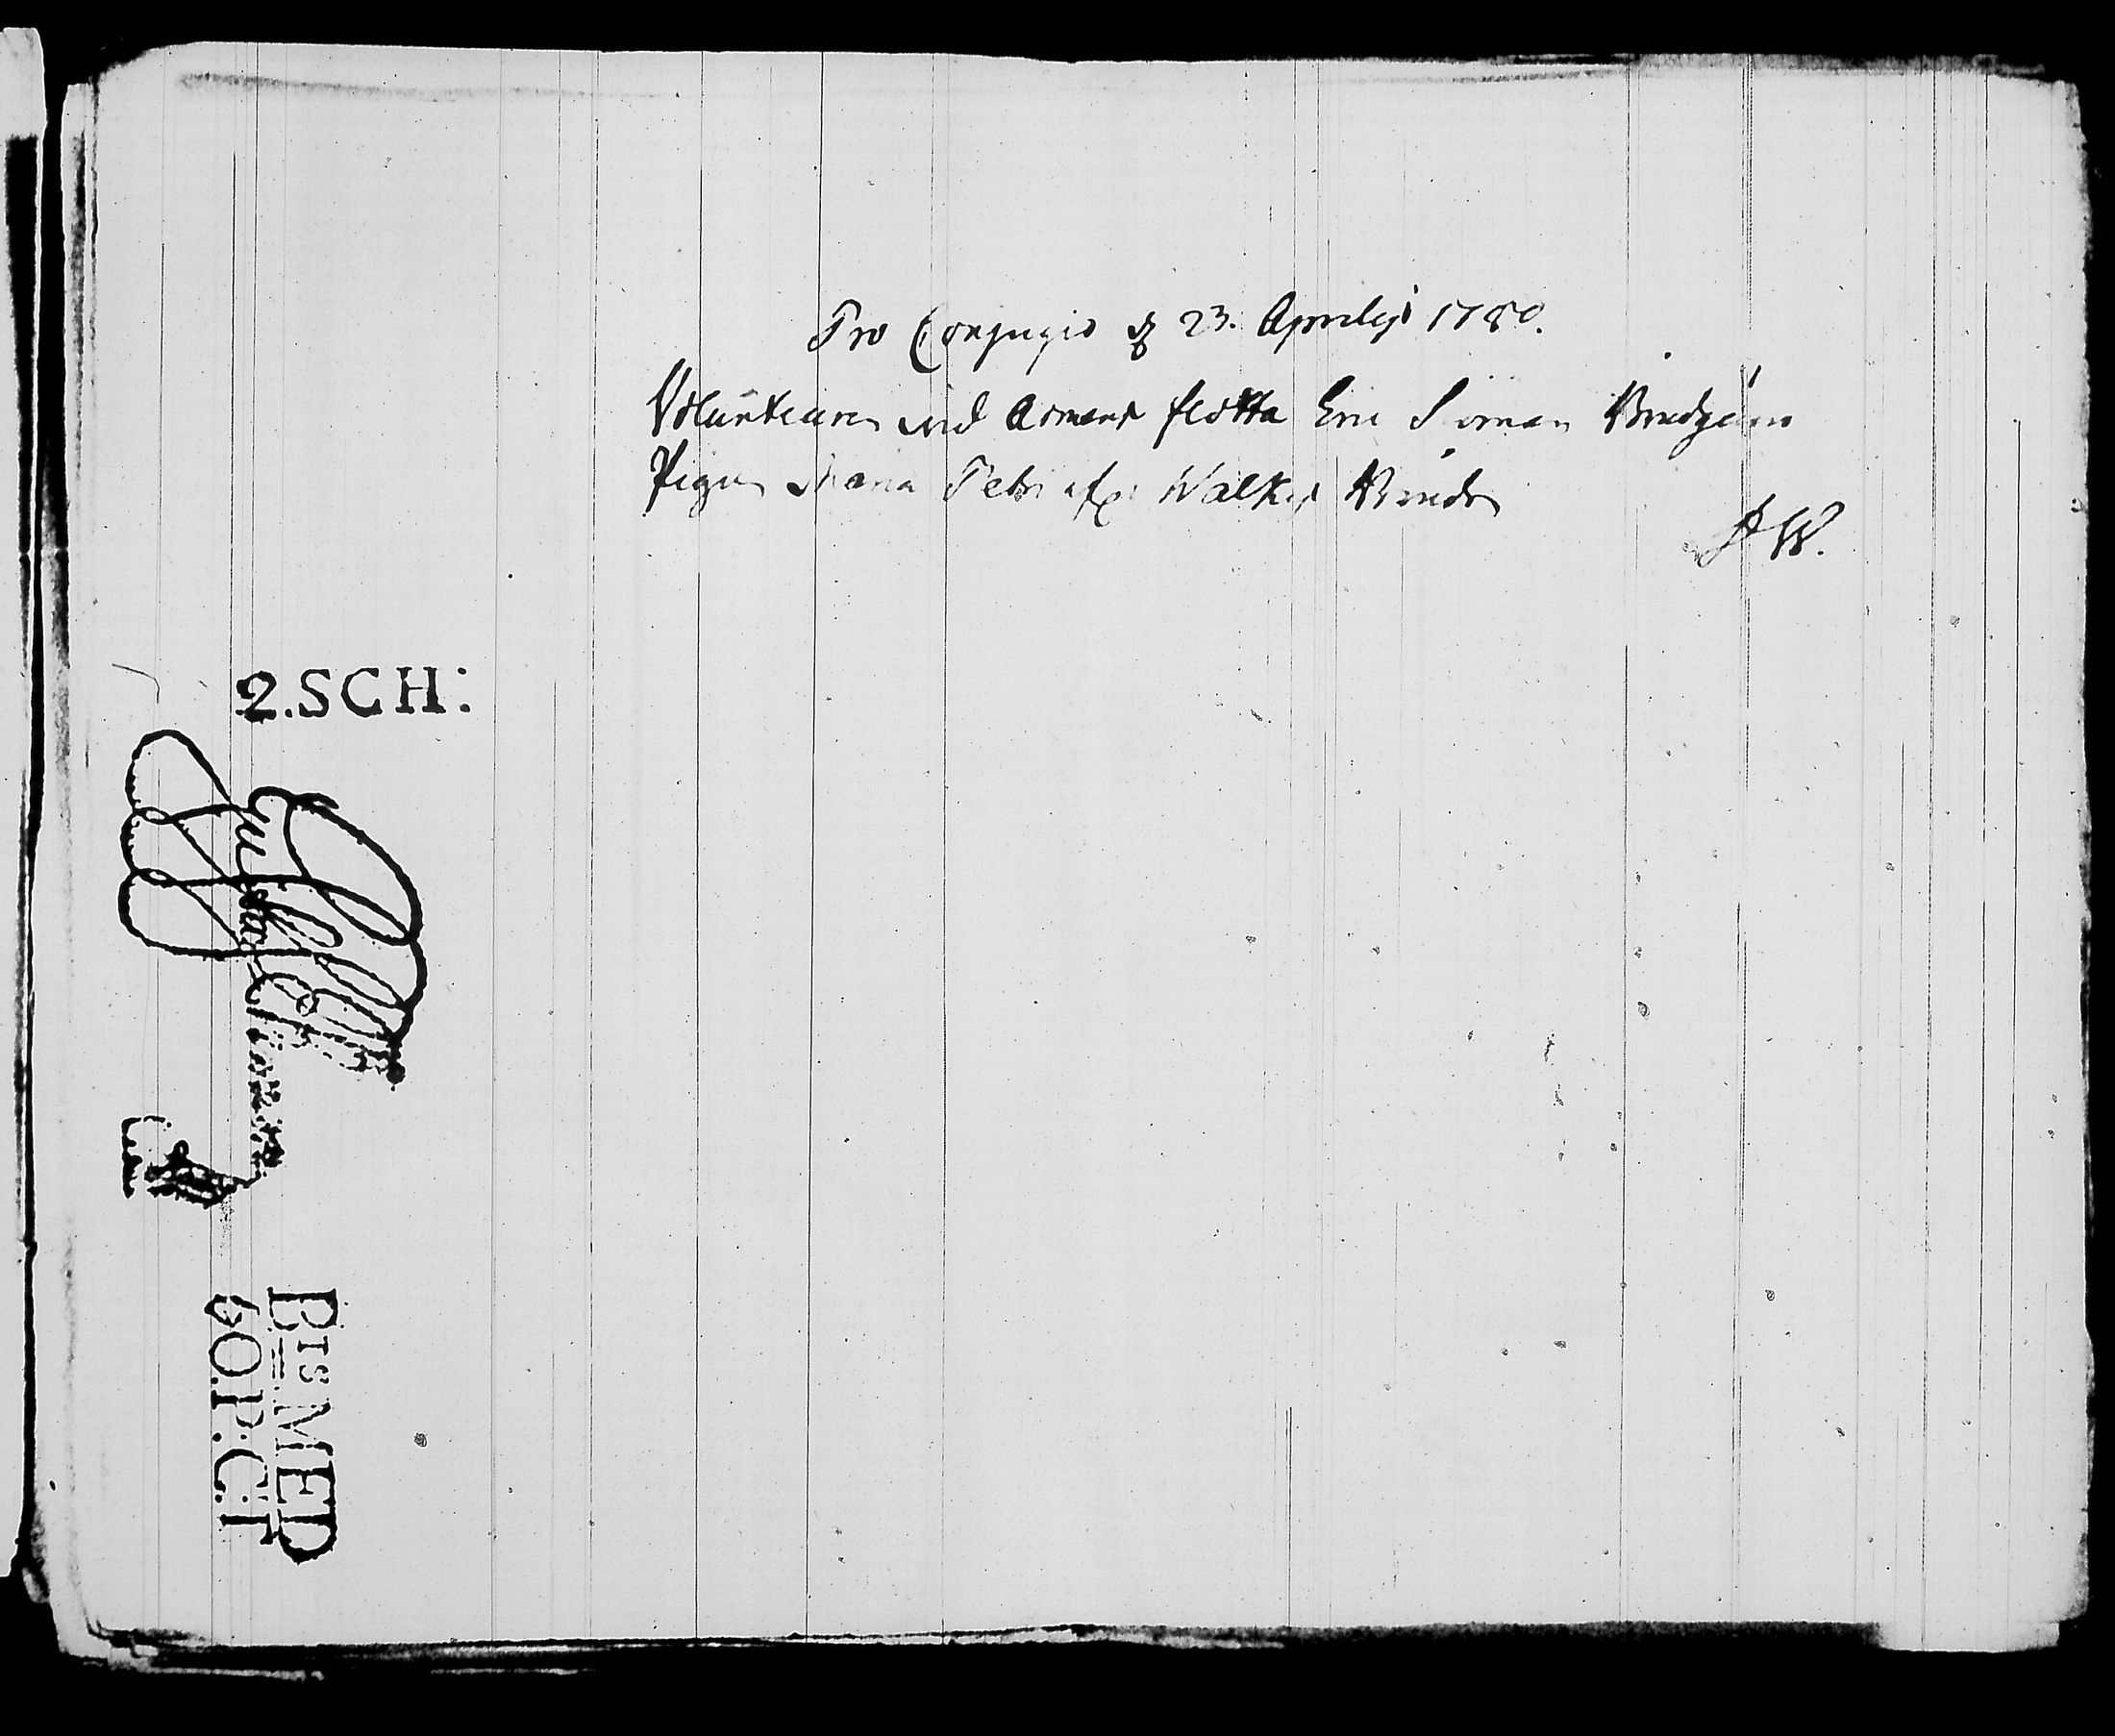 Pro Conjugio d. 23. Aprilis 1780.
Volunteuren wid Armens flotta Eric Soman Brudgum
Pigan Maria Petri Walkis Brud
AW.
2.SCH:
Gustaf
BIS MED
60.P:C:T